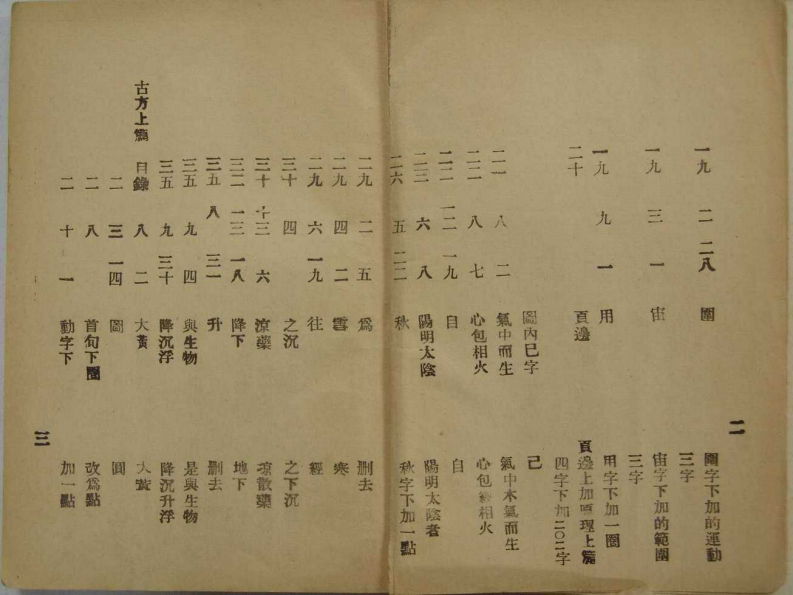 二
一九 二 二八 圈 圈字下加的運動
三字
一九 三 一 宙 宙字下加的範圍
三字
一九 九 一 用 用字下加一圈
二十 頁邊 頁邊上加原理上篇
四字下加二〇二字
圖內已字 己
二一 八 二 氣中而生 氣中木氣而生
二二 八 七 心包相火 心包 相火
二二 一二 一九 自 自
二三 六 八 陽明太陰 陽明太陰者
二六 五 二二 秋 秋字下加一點
二九 二 五 爲 删去
二九 四 二 寒
二九 六 一九 往 經
三十 四 之沉 之下沉
三十 十三 六 涼藥 涼散藥
三三 一三 一八 降下 地下
三五 八 三一 升 删去
三五 九 四 與生物 是與生物
三五 九 三十 降沉浮 降沉升浮
古方上篇 目錄 八 二 大黃 大
二 三 一四 圖 圓
二 八 首句下圈 改爲點
二 十 一 動字下 加一點
三